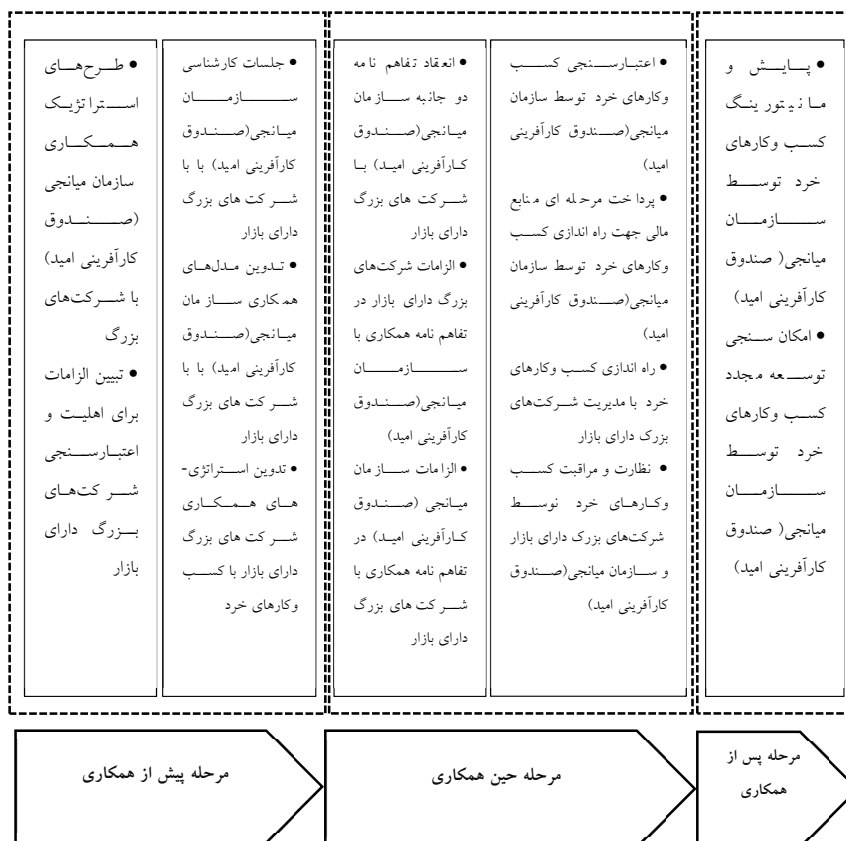 • طرح‌های
استراتژیک
همکاری
سازمان میانجی
(صندوق
کارآفرینی امید)
با شرکت‌های
بزرگ
• تبیین الزامات
برای اهلیت و
اعتبارسنجی
شرکت‌های
بزرگ دارای
بازار
• جلسات کارشناسی
سازمان
میانجی(صندوق
کارآفرینی امید) با با
شرکت های بزرگ
دارای بازار
• تدوین مدل‌های
همکاری سازمان
میانجی(صندوق
کارآفرینی امید) با با
شرکت های بزرگ
دارای بازار
• تدوین استراتژی-
های همکاری
شرکت های بزرگ
دارای بازار با کسب
وکارهای خرد
• انعقاد تفاهم نامه
دو جانبه سازمان
میانجی(صندوق
کارآفرینی امید) با
شرکت های بزرگ
دارای بازار
• الزامات شرکت‌های
بزرگ دارای بازار در
تفاهم نامه همکاری با
سازمان
میانجی(صندوق
کارآفرینی امید)
• الزامات سازمان
میانجی (صندوق
کارآفرینی امید) در
تفاهم نامه همکاری با
شرکت های بزرگ
دارای بازار
• اعتبارسنجی کسب
وکارهای خرد توسط سازمان
میانجی(صندوق کارآفرینی
امید)
• پرداخت مرحله ای منابع
مالی جهت راه اندازی کسب
وکارهای خرد توسط سازمان
میانجی(صندوق کارآفرینی
امید)
• راه اندازی کسب وکارهای
خرد با مدیریت شرکت‌های
بزرک دارای بازار
• نظارت و مراقبت کسب
وکارهای خرد نوسط
شرکت‌های بزرک دارای بازار
و سازمان میانجی(صندوق
کارآفرینی امید)
• پایش و
مانیتورینگ
کسب وکارهای
خرد توسط
سازمان
میانجی( صندوق
کارآفرینی امید)
• امکان سنجی
توسعه مجدد
کسب وکارهای
خرد توسط
سازمان
میانجی( صندوق
کارآفرینی امید)
مرحله پیش از همکاری
مرحله حین همکاری
مرحله پس از
همکاری